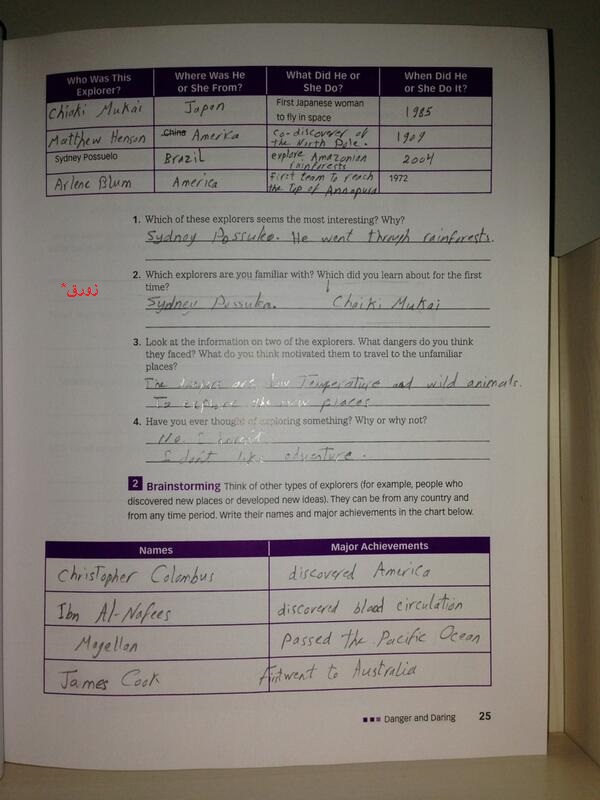 Who Was This Explorer? Where Was He or She From? What Did He or She Do? When Did He or She Do It?
Chiaki Mukai Japan First Japanese woman to fly in space 1985
Matthew Henson China America co-discoverer of the North Pole. 1909
Sydney Possuelo Brazil explore Amazonian rainforests 2004
Arlene Blum America first team to reach the Top of Annapura 1972
1. Which of these explorers seems the most interesting? Why?
Sydney Possuleo. He went through rainforests.
2. Which explorers are you familiar with? Which did you learn about for the first
time?
زورق*
Sydney Possuka. Chaiki Mukai
3. Look at the information on two of the explorers. What dangers do you think
they faced? What do you think motivated them to travel to the unfamiliar
places?
The dangers are low Temperature and wild animals.
To explore the new places
4. Have you ever thought of exploring something? Why or why not?
No. I haven't
I don't like adventure.
2 Brainstorming Think of other types of explorers (for example, people who
discovered new places or developed new ideas). They can be from any country and
from any time period. Write their names and major achievements in the chart below.
Names Major Achievements
Christopher Colombus discovered America
Ibn Al-Nafees discovered blood circulation
Magellan Passed the Pacific Ocean
James Cook first went to Australia
Danger and Daring 25